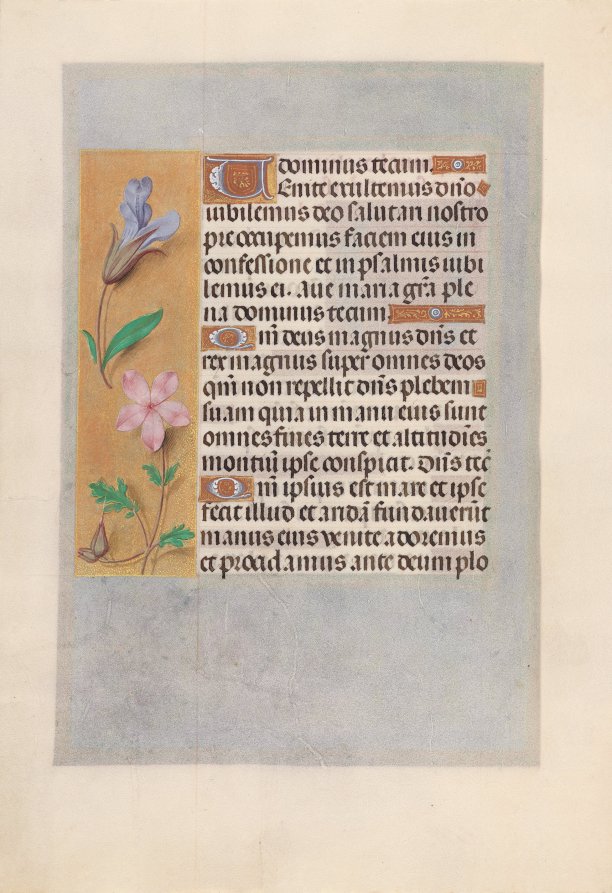 dominus tecum.
Venite exultemus dn̄o
iubilemus deo salutari nostro
preoccupemus faciem eius in
confessione et in psalmis iubi
lemus ei. Aue maria gr̄a ple
na dominus tecum.
Qm̄ deus magnus dn̄s et
rex magnus super omnes deos
qm̄ non repellit dn̄s plebem
suam quia in manu eius sunt
omnes fines terre et altitudīes
montiū ipse conspicit. Dn̄s tec̄
Qm̄ ipsius est mare et ipse
fecit illud et aridā fundauerūt
manus eius venite adoremus
et procidamus ante deum plo